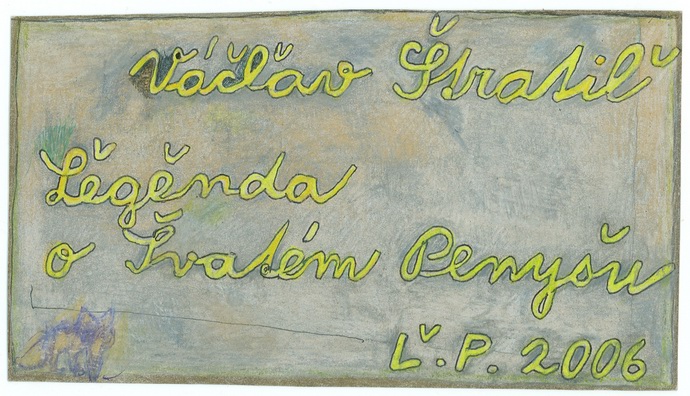 Váčlǎv Štratilˇ
Lěgěnda
o Švatém Penyšu
Lˇ.P. 2006